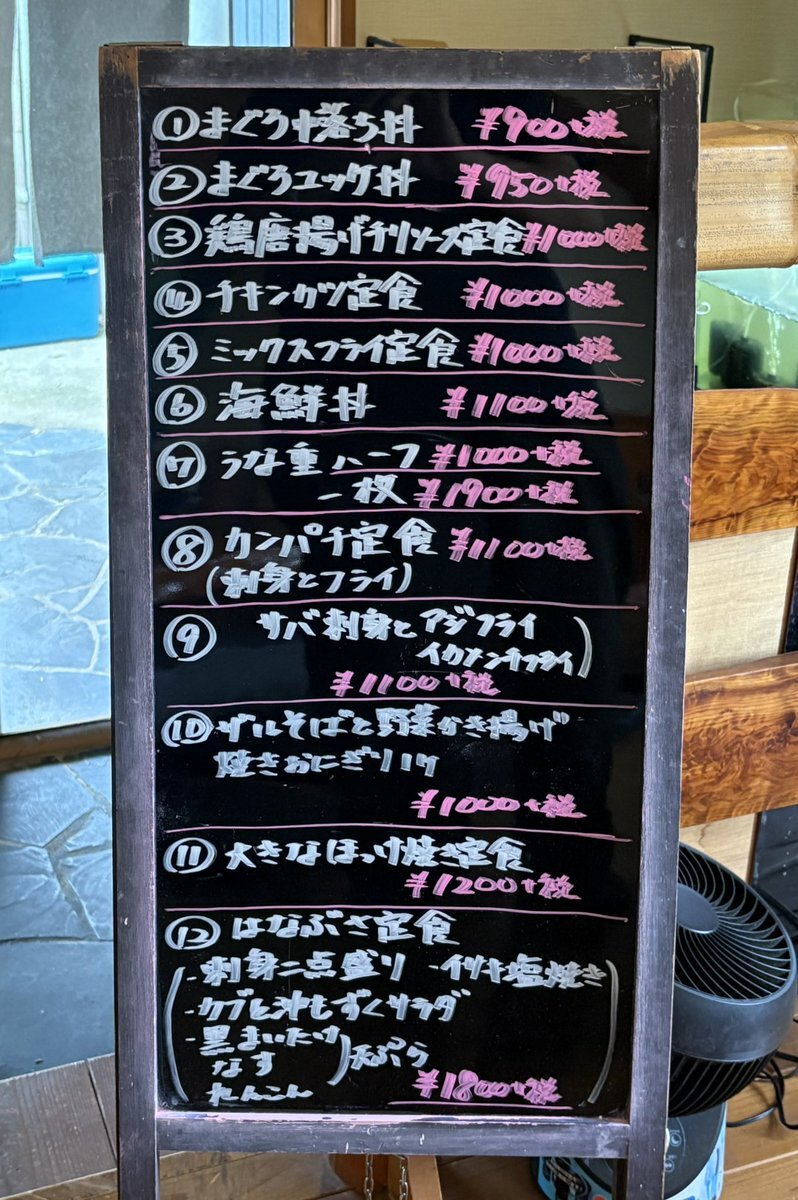 ① まぐろ中落ち丼 ¥900+税
② まぐろユッケ丼 ¥950+税
③ 鶏唐揚げチリソース定食 ¥1000+税
④ チキンカツ定食 ¥1000+税
⑤ ミックスフライ定食 ¥1000+税
⑥ 海鮮丼 ¥1100+税
⑦ うな重ハーフ ¥1000+税
一枚 ¥1900+税
⑧ カンパチ定食 ¥1100+税
(刺身とフライ)
⑨ サバ刺身とアジフライ
イカメンチフライ)
¥1100+税
⑩ ザルそばと野菜かき揚げ
焼きおにぎり1ケ
¥1000+税
⑪ 大きなほっけ焼き定食
¥1200+税
⑫ はなぶさ定食
(・刺身二点盛り ・イサキ塩焼き)
・カブと沖もずくサラダ
・黒まいたけ
なす )天ぷら
れんこん ¥1800+税